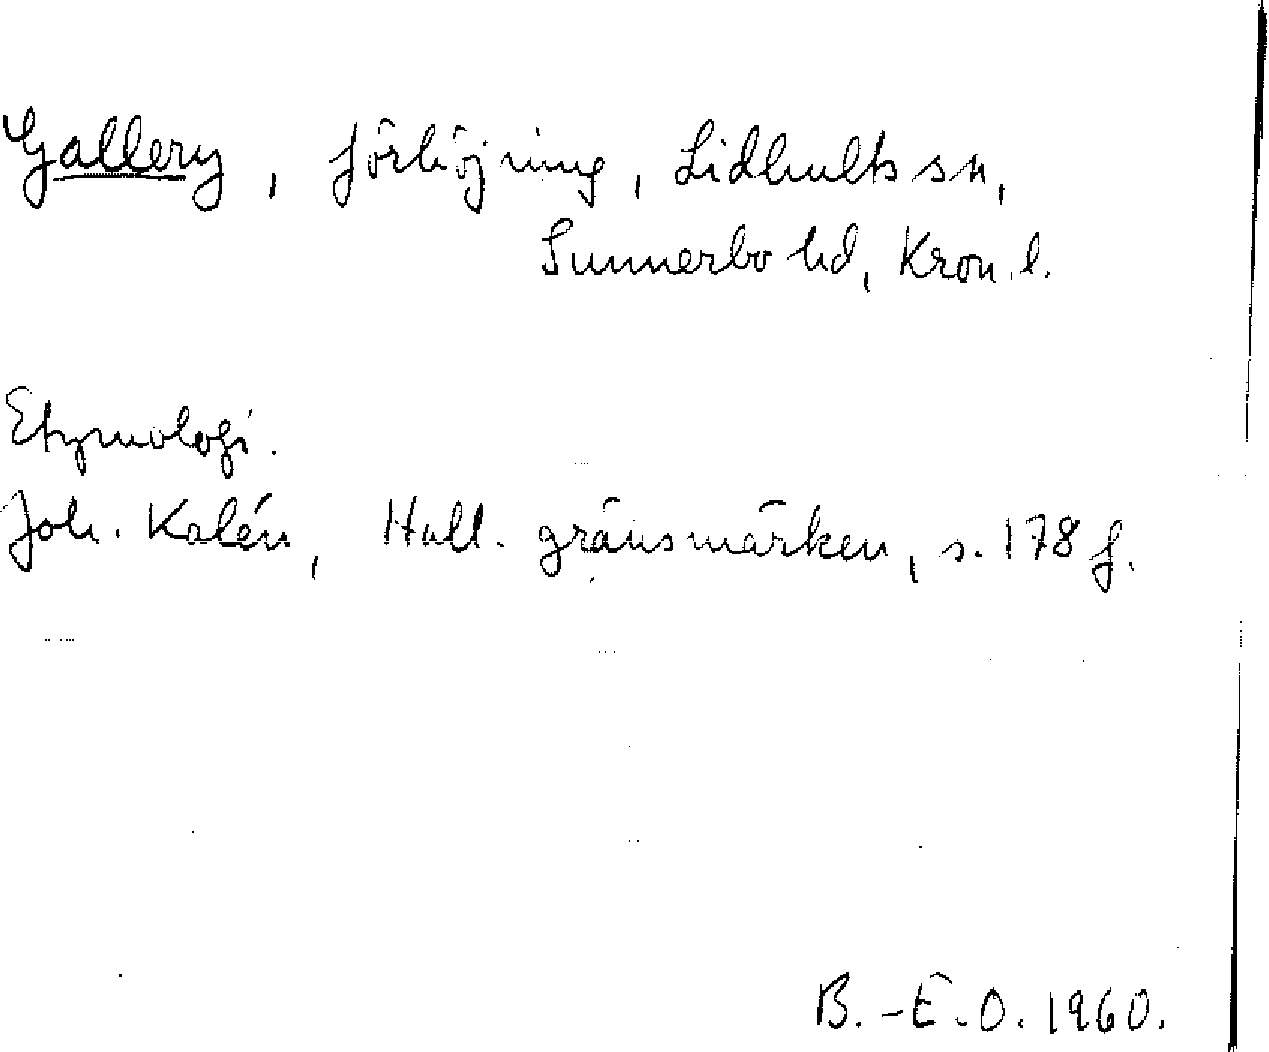 Gallery, förhöjning, Lidhults sn,
Sunnerbo hd, Kron. l.
Etymologi.
Joh. Kalén, Hall. gränsmärken, s. 178 f.
B.-E.O. 1960.